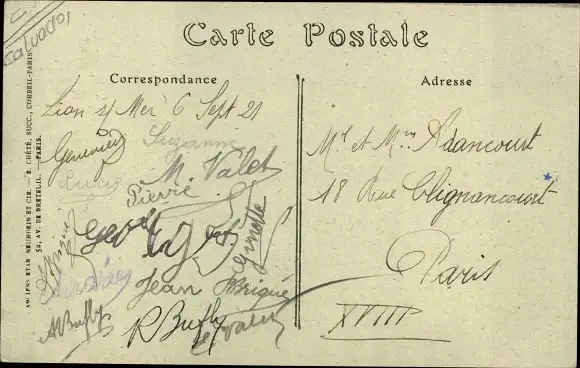 Calvados
Carte Postale
Correspondance
Adresse
Lion s/ Mer 6 Sept 21
Geneviève
Suzanne
M. Valet
Lucie
Pierre
Georges
Ginette
Jean
Brigué
A Buffy
R Buffy
Mr et Mme Adancourt
18 Rue Clignancourt
Paris
XVIII
ANCIENS ETAB. NEURDEIN ET CIE. — E. CRÉTÉ, SUCC., CORBEIL-PARIS
52, AV. DE BRETEUIL. — PARIS.